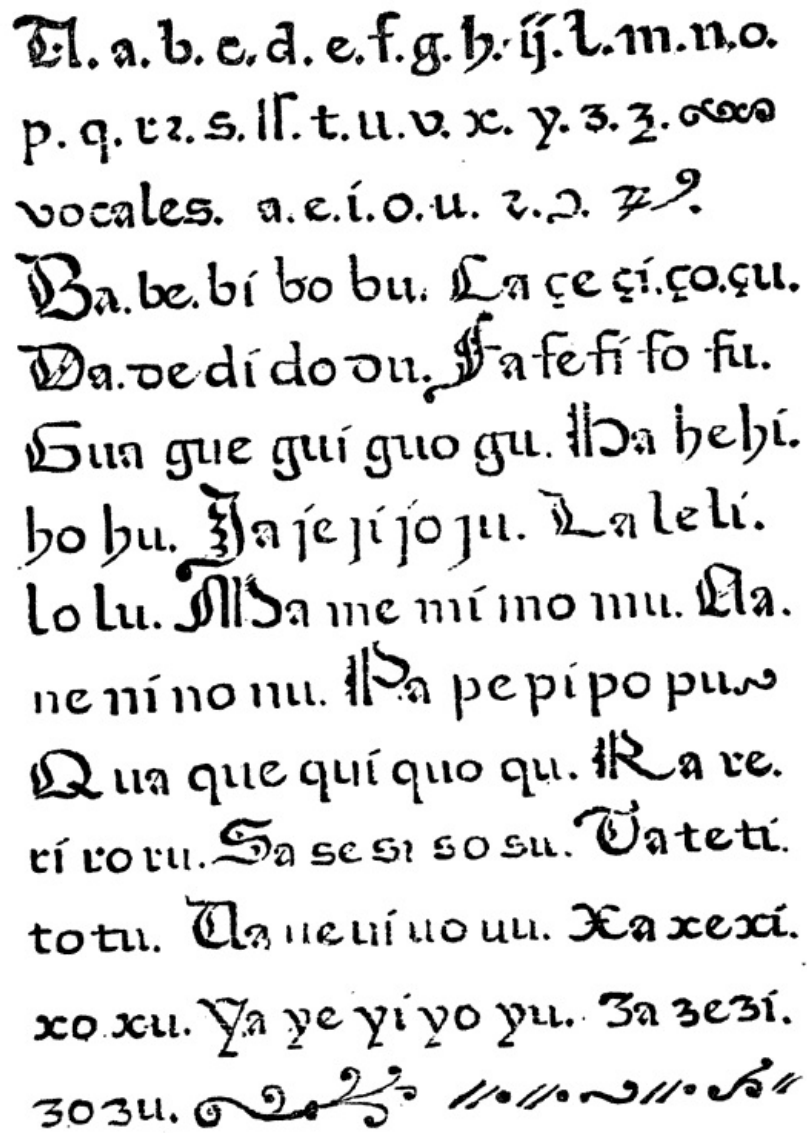 A. a. b. c. d. e. f. g. h. ij. l. m. n. o.
p. q. r ꝛ. s. ſſ. t. u. v. x. y. ʒ. ʒ.
vocales. a. e. í. o. u.
Ba. be. bí bo bu. Ca çe çí. ço. çu.
Da. de dí do du. Fa fe fí fo fu.
Gua gue guí guo gu. Ha he hí.
ho hu. Ja je jí jo ju. La le lí.
lo lu. Ma me mí mo mu. Na.
ne ní no nu. Pa pe pí po pu
Qua que quí quo qu. Ra re.
rí ro ru. Sa se sı so su. Ta te tí.
to tu. Ua ue uí uo uu. Xa xe xí.
xo xu. Ya ye yí yo yu. Ʒa ʒe ʒí.
ʒo ʒu.